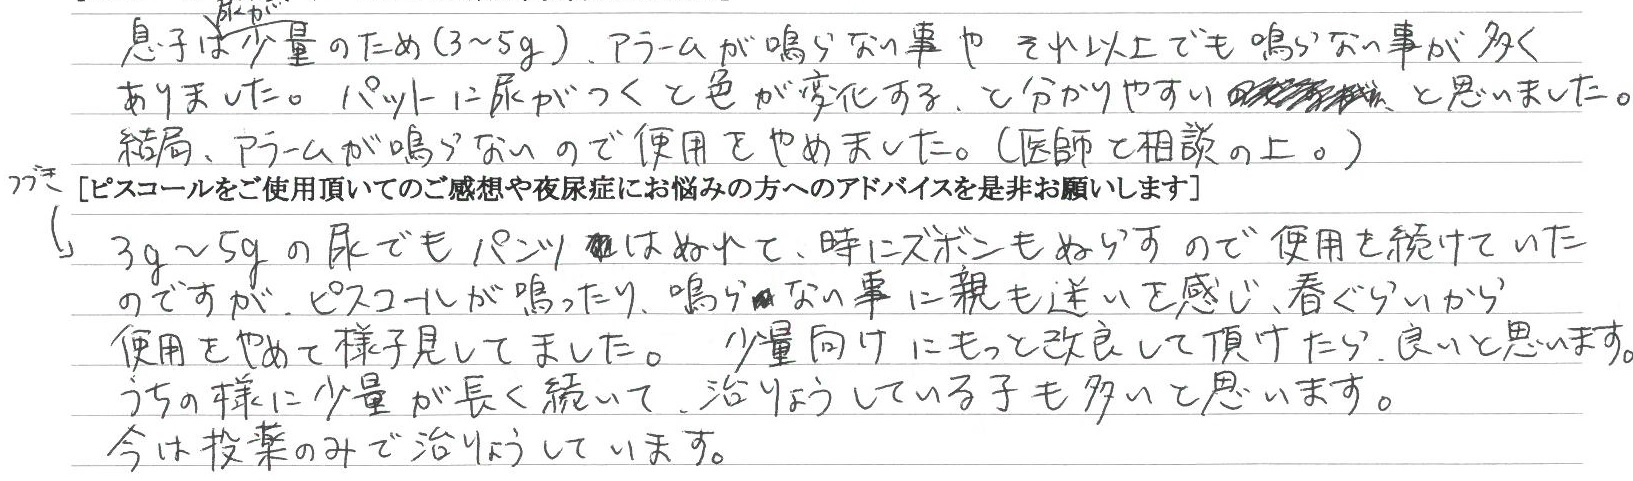 息子は尿が少量のため(3〜5g)、アラームが鳴らない事や それ以上でも鳴らない事が多く
ありました。パットに尿がつくと色が変化する、と分かりやすい と思いました。
結局、アラームが鳴らないので使用をやめました。(医師と相談の上。)
つづき
[ピスコールをご使用頂いてのご感想や夜尿症にお悩みの方へのアドバイスを是非お願いします]
3g〜5gの尿でもパンツはぬれて、時にズボンもぬらすので使用を続けていた
のですが、ピスコールが鳴ったり、鳴らない事に親も迷いを感じ、春ぐらいから
使用をやめて様子見してました。 少量向けにもっと改良して頂けたら、良いと思います。
うちの様に少量が長く続いて、治りょうしている子も多いと思います。
今は投薬のみで治りょうしています。